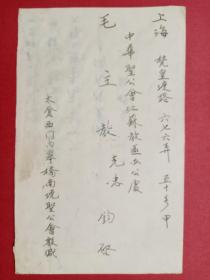 上海 梵皇渡路 六七六弄 五十号甲
中华圣公会江苏教区办公处
毛主教克忠 钧启
太仓西门内皋桥南境圣公会教缄